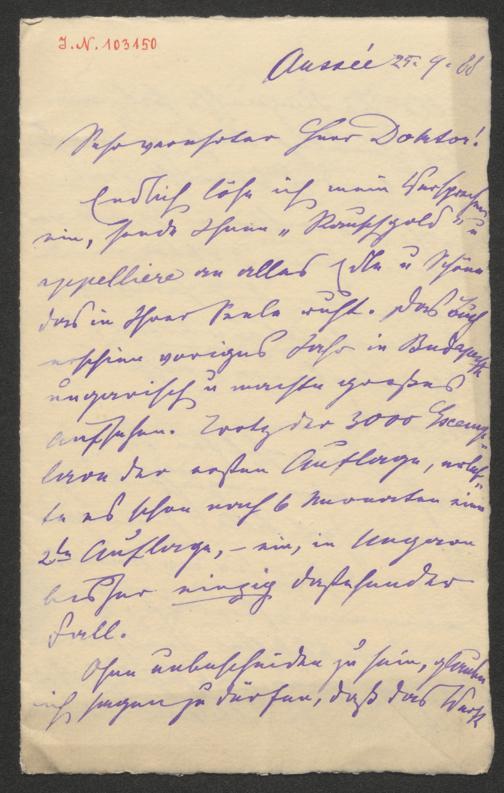 J.N. 103150
Aussée 25. 9. 88
Sehr verehrter Herr Doktor!
Endlich löse ich mein Versprechen
ein, sende Ihnen „Rauschgold" u
appelliere an alles Edle u Schöne
das in Ihrer Seele ruht. Das Buch
erschien voriges Jahr in Budapest
ungarisch u machte großes
Aufsehen. Trotz der 3000 Exemp-
lare der ersten Auflage, erleb-
te es schon nach 6 Monaten eine
2te Auflage, – ein, in Ungarn
bisher einzig dastehender
Fall.
Ohne unbescheiden zu sein, glaube
ich sagen zu dürfen, daß das Werk